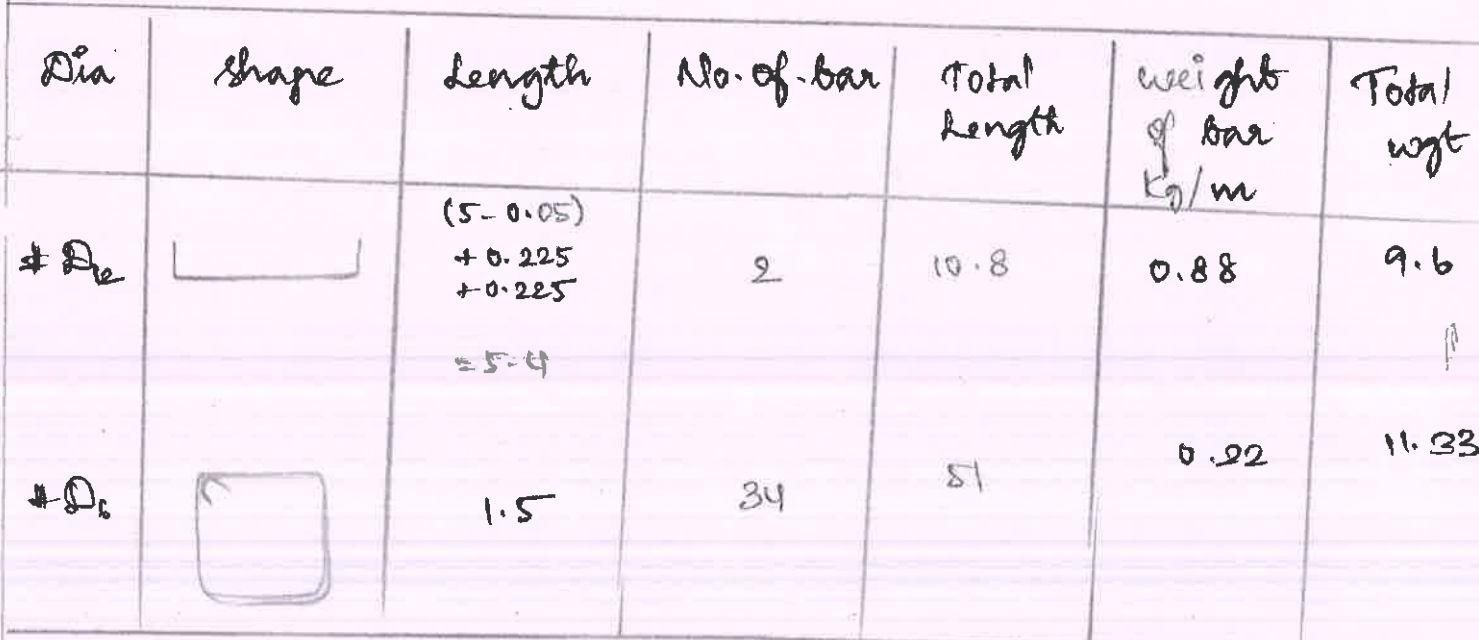 Dia Shape Length No. of. bar Total Length weight of bar Kg/m Total wgt
# D12 (5-0.05) + 0.225 + 0.225 = 5.4 2 10.8 0.88 9.6
# D6 1.5 34 51 0.22 11.33